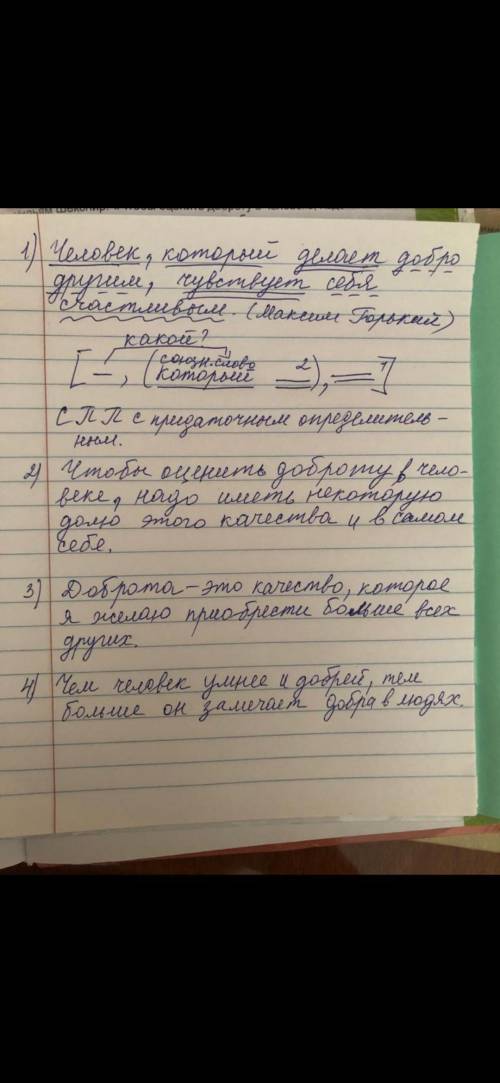 1) Человек, который делает добро
другим, чувствует себя
счастливым. (Максим Горький)
какой?
[ — , ( союзн. слово
который 2 ), 1 ]
СПП с придаточным определитель-
ным.
2) Чтобы оценить доброту в чело-
веке, надо иметь некоторую
долю этого качества и в самом
себе.
3) Доброта – это качество, которое
я желаю приобрести больше всех
других.
4) Чем человек умнее и добрей, тем
больше он замечает добра в людях.